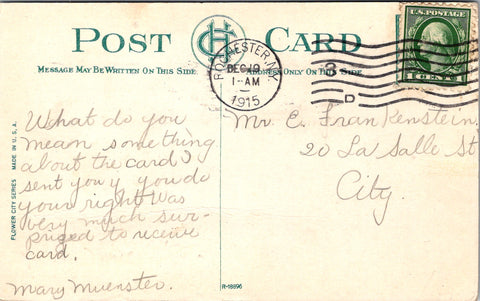 POST CARD
MESSAGE MAY BE WRITTEN ON THIS SIDE
ADDRESS ONLY ON THIS SIDE
ROCHESTER, N.Y.
DEC 19
1-AM
1915
3
D
U.S. POSTAGE
1 CENT 1
What do you
mean something
about the card I
sent you y you do
your right was
very much sur-
prized to receive
card.
Mary Muenster.
Mr. E. Frankenstein.
20 La Salle St
City.
FLOWER CITY SERIES MADE IN U.S.A.
R-18896